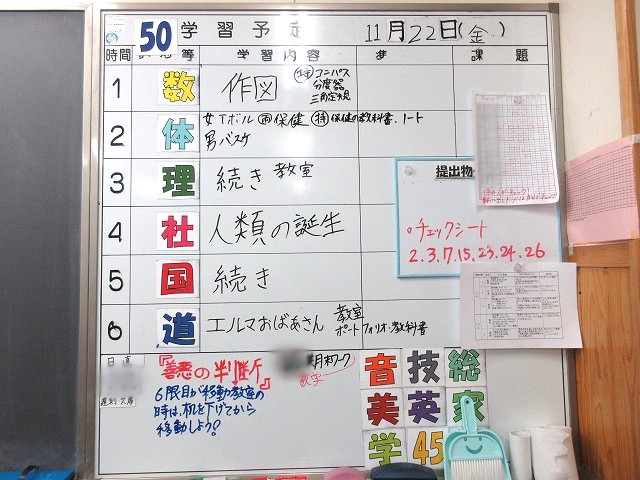 50 学習予定 11月22日(金)
時間 等 学習内容 課題
1 数 作図 特 コンパス
分度器
三角定規
2 体 女 Tボール 雨 保健 特 保健の教科書、ノート
男 バスケ
3 理 続き 教室
4 社 人類の誕生
5 国 続き
6 道 エルマおばあさん 教室
ポートフォリオ・教科書
提出物
チェックシート
2.3.7.15.23.24.26
日直
遅刻 欠席
『善悪の判断』
6限目が移動教室の
時は、机を下げてから
移動しよう!
音 技 総
美 英 家
学 45